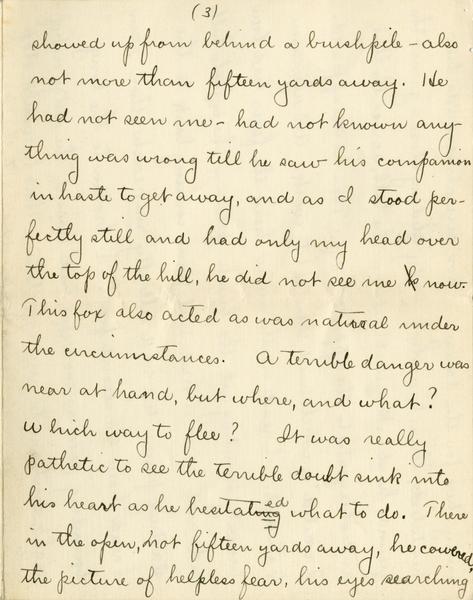 (3)
showed up from behind a brushpile - also
not more than fifteen yards away. He
had not seen me - had not known any-
thing was wrong till he saw his companion
in haste to get away, and as I stood per-
fectly still and had only my head over
the top of the hill, he did not see me now.
This fox also acted as was natural under
the circumstances. A terrible danger was
near at hand, but where, and what?
Which way to flee? It was really
pathetic to see the terrible doubt sink into
his heart as he hesitated what to do. There
in the open, not fifteen yards away, he cowered,
the picture of helpless fear, his eyes searching